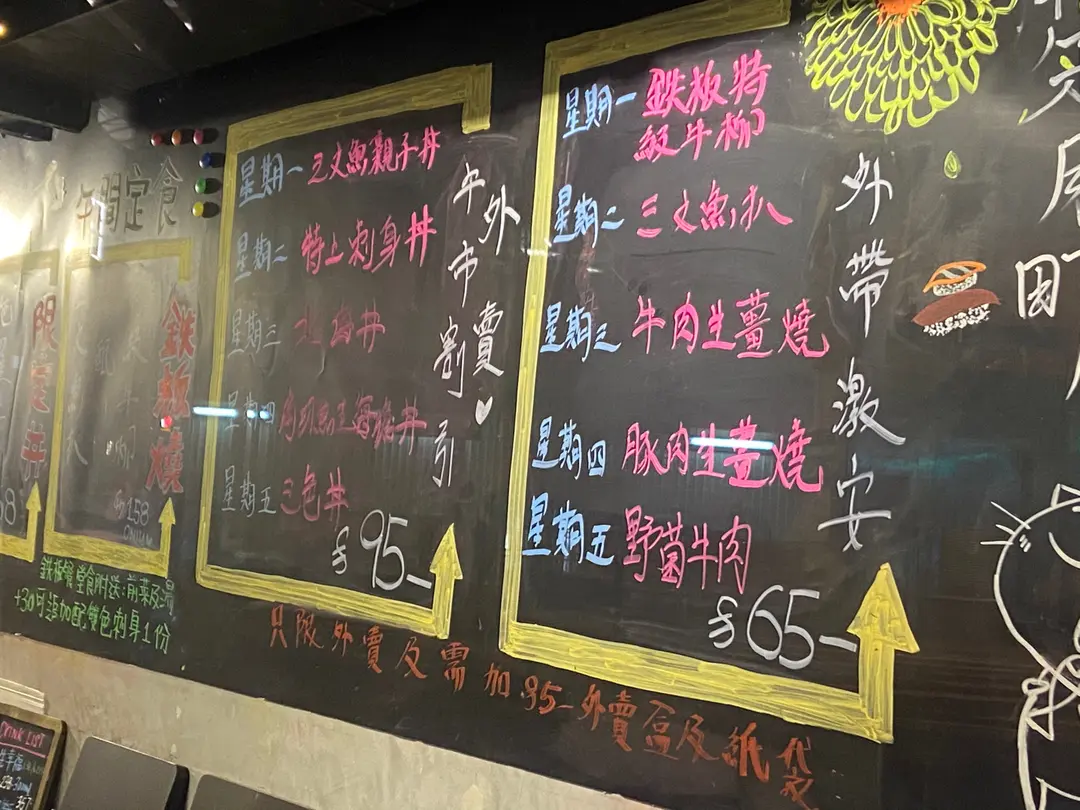 午間定食
限定丼
鉄板燒
$158
鉄板餐堂食附送:前菜及湯
+30可追加配雙色刺身1份
星期一 三文魚親子丼
星期二 特上刺身丼
星期三 北海丼
星期四
星期五 三色丼
$95-
午市割引
外賣
星期一 鉄板特
級牛柳
星期二 三文魚扒
星期三 牛肉生薑燒
星期四 豚肉生薑燒
星期五 野菌牛肉
$65-
外帶激安
只限外賣及需加$5-外賣盒及紙袋
DRINK LIST